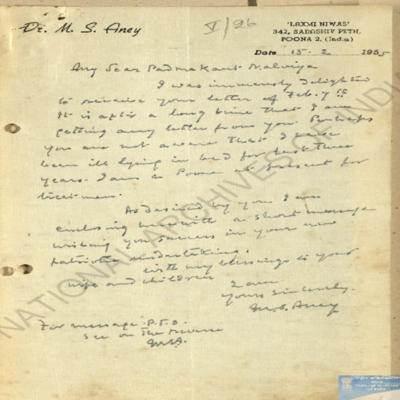 Dr. M. S. Aney
V/96
'LAXMI NIWAS'
342, SADASHIV PETH,
POONA 2. (India)
Date 15-2 1955
My dear Padmakant Malviya
I was immensely delighted
to receive your letter of Feb. 7th
It is after a long time that I am
getting any letter from you Perhaps
you are not aware that I have
been ill lying in bed for last three
years. I am in Poona at present for
treatment.
As desired by you I am
enclosing herewith a short message
wishing you success in your new
patriotic undertaking.
With my blessings to your
wife and children
I am
Yours Sincerely.
M.S. Aney
For message P.T.O.
See on the reverse
MSA
NATIONAL ARCHIVES OF INDIA